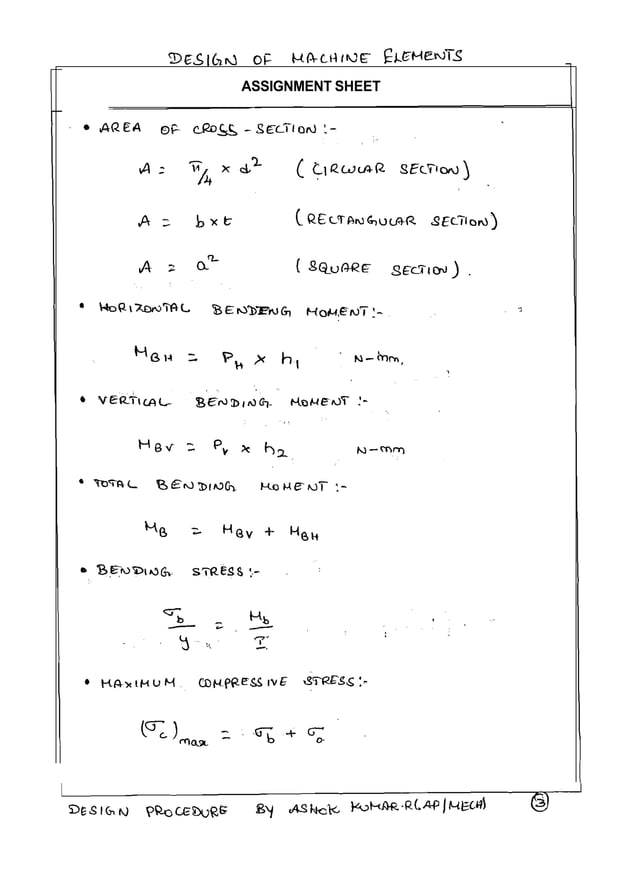 DESIGN OF MACHINE ELEMENTS
ASSIGNMENT SHEET
• AREA OF CROSS-SECTION :-
A = π/4 × d² (CIRCULAR SECTION)
A = b × t (RECTANGULAR SECTION)
A = a² (SQUARE SECTION).
• HORIZONTAL BENDENG MOMENT :-
M_BH = P_H × h₁ N-mm.
• VERTICAL BENDING MOMENT :-
M_BV = P_V × h₂ N-mm
• TOTAL BENDING MOMENT :-
M_B = M_BV + M_BH
• BENDING STRESS :-
σ_b/y = M_b/I
• MAXIMUM COMPRESSIVE STRESS :-
(σ_c)_max = σ_b + σ_o
DESIGN PROCEDURE BY ASHOK KUMAR.R(AP/MECH) 3